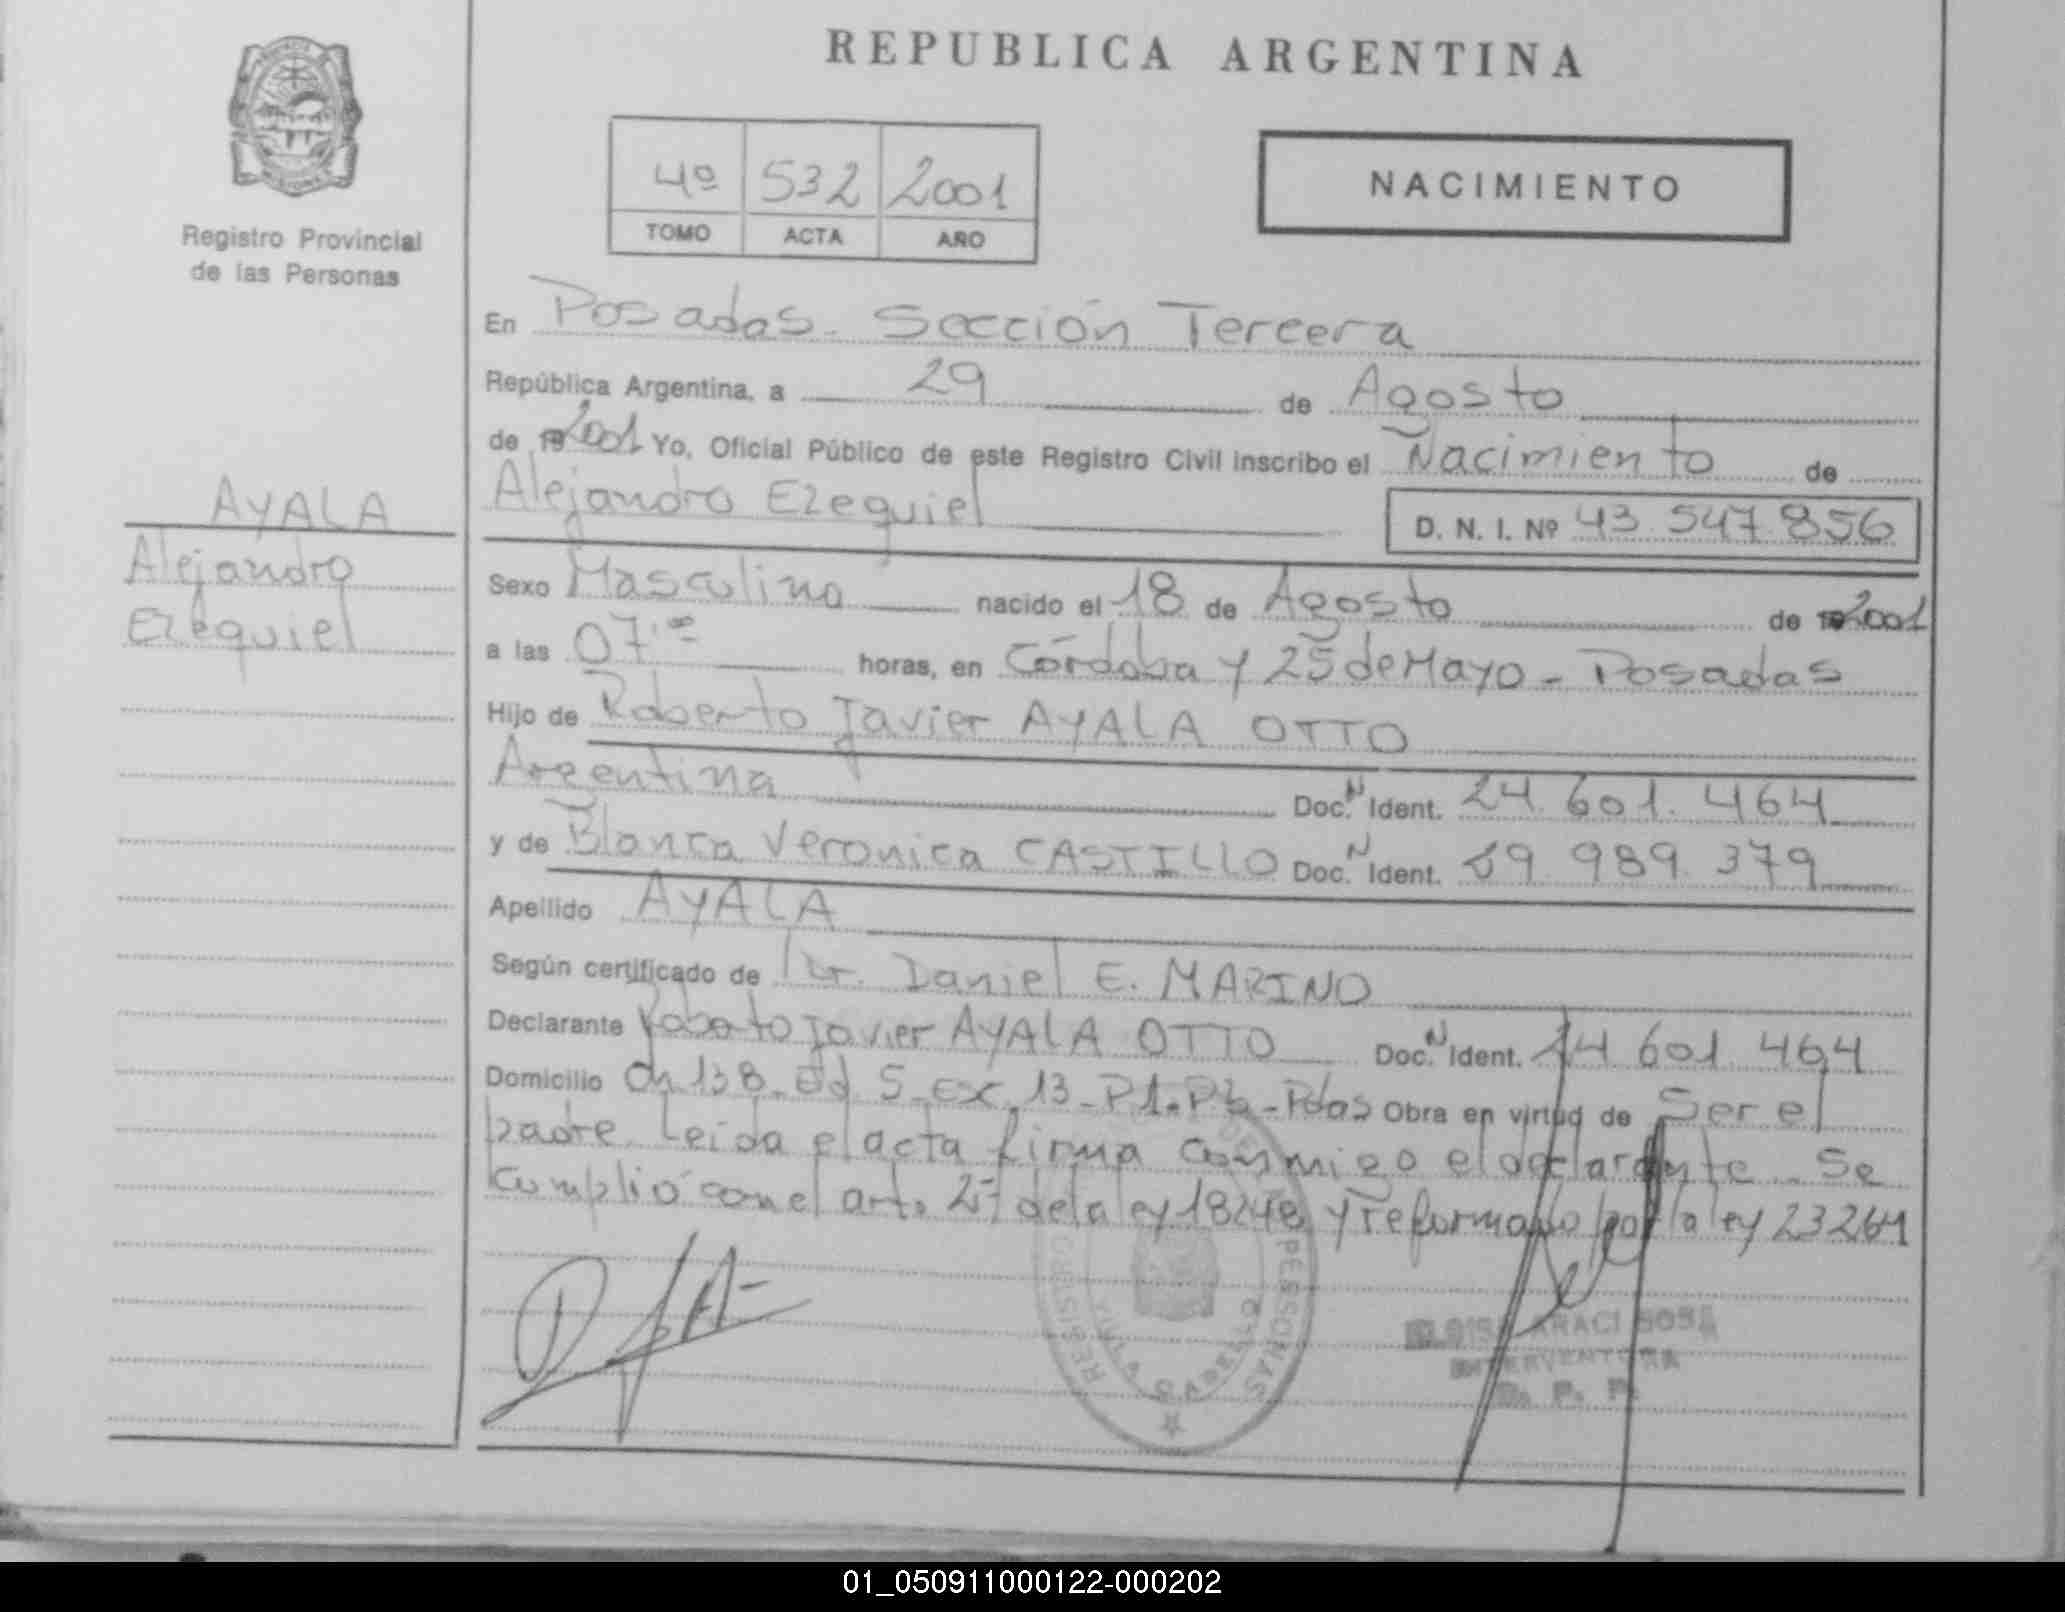 REPUBLICA ARGENTINA
MISIONES
Registro Provincial
de las Personas
4º 532 2001
TOMO ACTA AÑO
NACIMIENTO
En Posadas - Sección Tercera
República Argentina, a 29 de Agosto
de 2001 Yo, Oficial Público de este Registro Civil inscribo el Nacimiento de
Alejandro Ezequiel D. N. I. Nº 43.547.856
AYALA
Alejandro
Ezequiel
Sexo Masculino nacido el 18 de Agosto de 2001
a las 07 horas, en Córdoba y 25 de Mayo - Posadas
Hijo de Roberto Javier AYALA OTTO
Argentina Doc. N Ident. 24.601.464
y de Blanca Veronica CASTILLO Doc. N Ident. 9 989 379
Apellido AYALA
Según certificado de Dr. Daniel E. MARINO
Declarante Roberto Javier AYALA OTTO Doc. N Ident. 24 601 464
Domicilio Ch 138 - Ed 5 - Ex 13 - P1 - Pdas Obra en virtud de Ser el
padre. Leida el acta firma conmigo el declarante. Se
cumplió con el art. 2º de la ley 18248 y reformado por la ley 23264
REGISTRO DE PERSONAS
VILLA CABELLO
ARACI SOSA
INTERVENTORA
R. P. P.
01_050911000122-000202